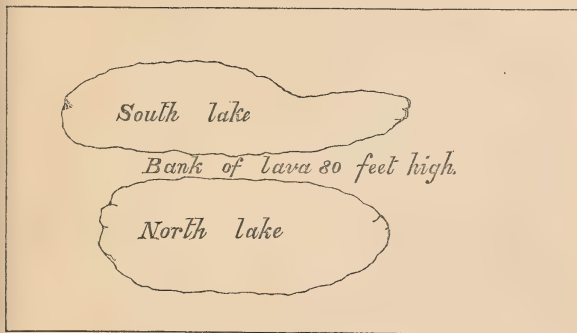 South lake
Bank of lava 80 feet high.
North lake